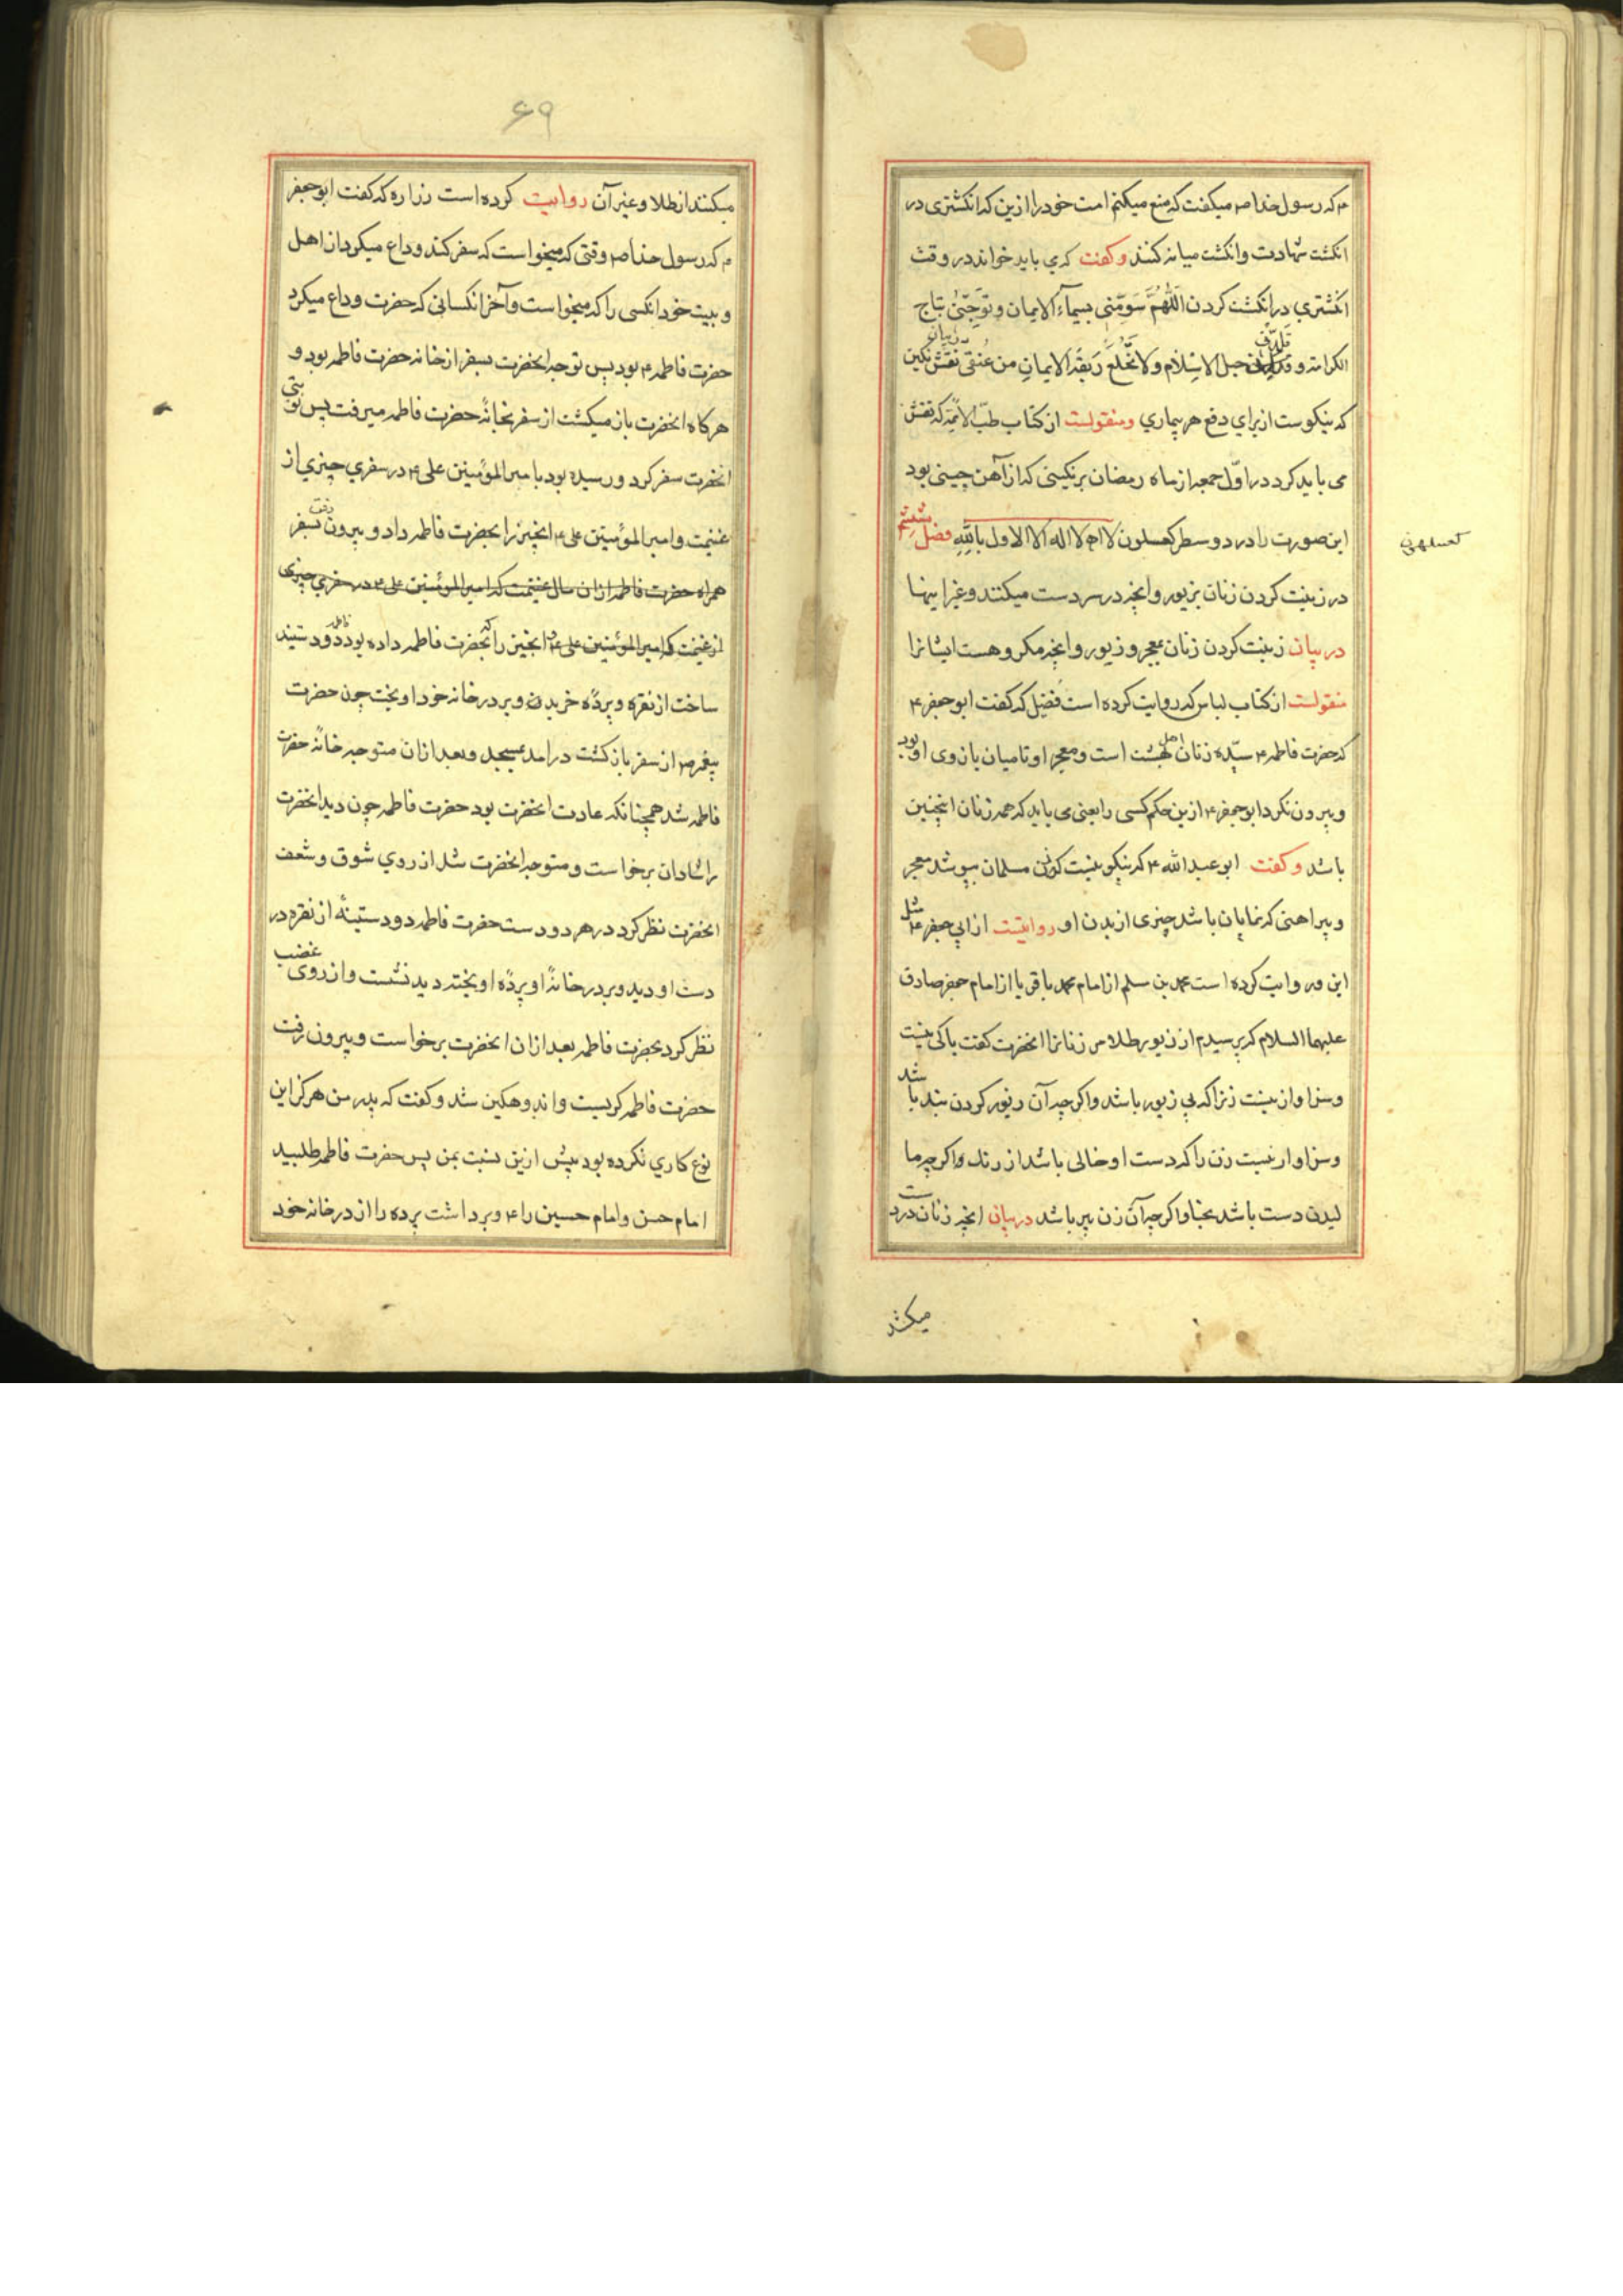 م که رسول خدا ص میکفت که منع میکنم امت خود را ازین که انکشتری در
انکشت شهادت وانکشت میانه کنند وکفت که می باید خواند در وقت
انکشتری در انکشت کردن اَللّٰهُمَّ سَوِّمْنِی بِسِیمَآءِ الایمان وتَوِّجْنیٖ بتاج
الکرامة و قَلِّدْنی حبل الاِسْلام ولا تَخْلَعْ رَبِقَةَ الایمانِ من عُنُقی در بیان نقش نکین
که نیکوست از برای دفع هر بیماری ومنقولست از کتاب طبّ الائمّة که نقش
می باید کرد در اوّل جمعه از ماه رمضان بر نکینی که از آهن چینی بود
این صورت را در دو سطر کعسلهون لا اله الا الاول بالله فصل ششم
کعسلهون
در زینت کردن زنان بزیور وانچه در سر دست میکنند وغیر اینها
در بیان زینت کردن زنان بمعجر وزیور وانچه مکروهست ایشانرا
منقولست از کتاب لباس که روایت کرده است فضیل که کفت ابو جعفر ع
که حضرت فاطمه ع سیّده زنان اهل بهشت است ومعجر او تا میان بازوی او بود
وبیرون نکرد ابو جعفر ع ازین حکم کسی را یعنی می باید که همه زنان اینچنین
باشد وکفت ابو عبد الله ع که نیکو نیست که زن مسلمان بپوشد معجر
وپیراهنی که نمایان باشد چیزی از بدن او روایتست از ابی جعفر ع مثل
این و روایت کرده است محمد بن مسلم از امام محمد باقر یا از امام جعفر صادق
علیهما السلام که پرسیدم از زیور طلا مر زنانرا انحضرت کفت باکی نیست
وسزاوار نیست زنرا که بی زیور باشد واکرچه آن زیور کردن بند باشد
وسزاوار نیست زن را که دست او خالی باشد از رنک واکرچه ما
لیدن دست باشد بحنا واکرچه آن زن پیر باشد در بیان انچه زنان در دست
میکنند
۶۹
میکنند از طلا وغیر آن روایت کرده است زراره که کفت ابو جعفر
م که رسول خدا ص وقتی که میخواست که سفر کند وداع میکرد از اهل
وبیت خود انکسی را که میخواست وآخر انکسانی که حضرت وداع میکرد
حضرت فاطمه ع بود پس توجه انحضرت بسفر از خانه حضرت فاطمه بود و
هرکاه انحضرت باز میکشت از سفر بخانهٔ حضرت فاطمه میرفت پس نوبتی
انحضرت سفر کرد ورسیده بود با میر المؤمنین علی ع در سفری چیزی از
غنیمت وامیر المؤمنین علی ع انچیز را بحضرت فاطمه داد وبیرون رفت بسفر
همراه حضرت فاطمه از ان مال غنیمت که امیر المؤمنین علی ع در سفری چیزی
از غنیمت که امیر المؤمنین علی ع انچیز را که بحضرت فاطمه داده بود فاطمه دو دستینه
ساخت از نقره وپردهٔ خرید وبر در خانه خود اویخت چون حضرت
پیغمبر ص از سفر باز کشت در امد بمسجد وبعد ازان متوجه خانهٔ حضرت
فاطمه شد همچنانکه عادت انحضرت بود حضرت فاطمه چون دید انحضرت
را شادان برخواست ومتوجه انحضرت شد از روی شوق وشعف
انحضرت نظر کرد در هر دو دست حضرت فاطمه دو دستینهٔ از نقره در
دست او دید وبر در خانهٔ او پردهٔ اویخته دید نشست واز روی غضب
نظر کرد بحضرت فاطمه بعد ازان انحضرت برخواست وبیرون رفت
حضرت فاطمه کریست واندوهکین شد وکفت که پدر من هرکز این
نوع کاری نکرده بود پیش ازین نسبت بمن پس حضرت فاطمه طلبید
امام حسن وامام حسین را ع وبرداشت پرده را از در خانه خود